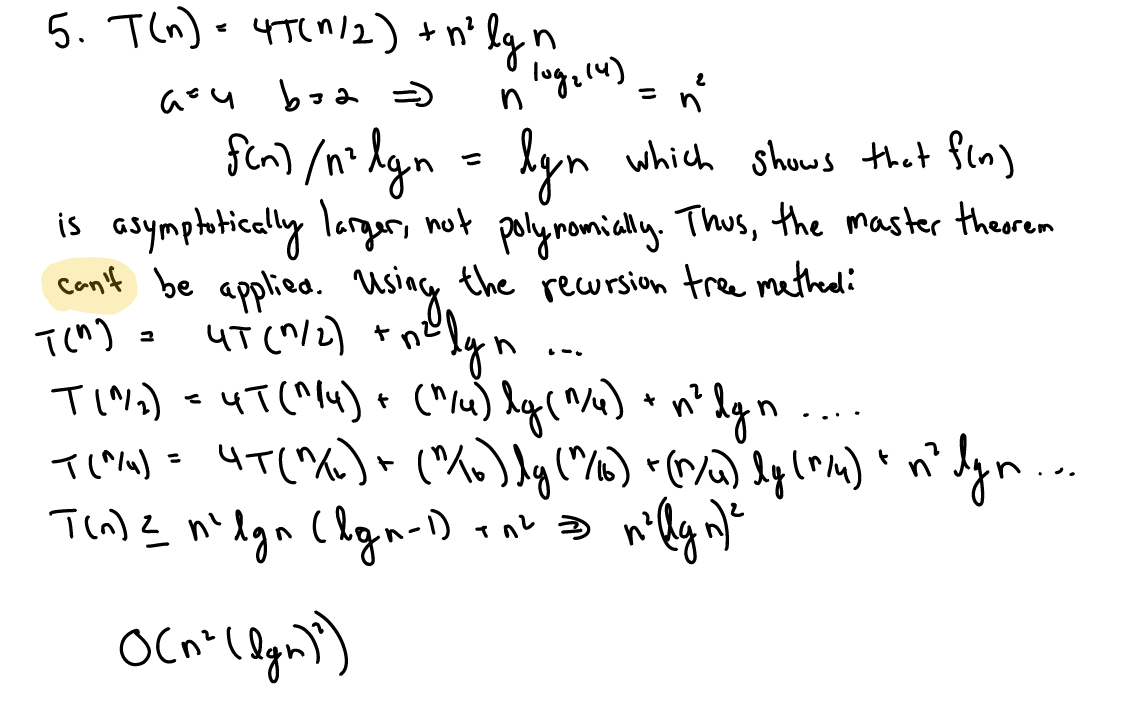 5. T(n) = 4T(n/2) + n² lg n
a=4 b=2 ⇒ n^log₂(4) = n²
f(n)/n² lg n = lg n which shows that f(n)
is asymptotically larger, not polynomially. Thus, the master theorem
can't be applied. Using the recursion tree method:
T(n) = 4T(n/2) + n² lg n ...
T(n/2) = 4T(n/4) + (n/4) lg(n/4) + n² lg n ....
T(n/4) = 4T(n/16) + (n/16) lg(n/16) + (n/4) lg(n/4) + n² lg n ...
T(n) ≤ n² lg n (lg n - 1) + n² ⇒ n²(lg n)²
O(n²(lg n)²)